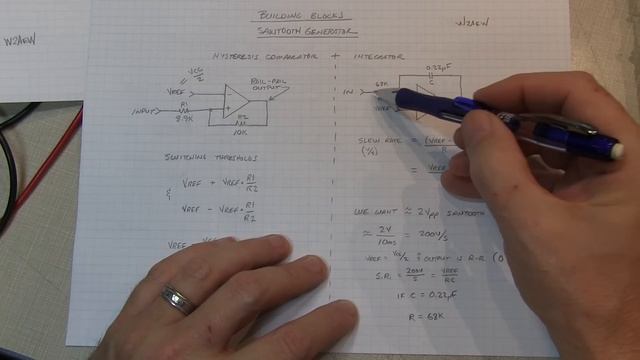 W2AEW
BUILDING BLOCKS
SAWTOOTH GENERATOR
W2AEW
HYSTERESIS COMPARATOR + INTEGRATOR
VCC/2
VREF
RAIL-RAIL
OUTPUT
INPUT
R1
8.9K
R2
10K
-
+
SWITCHING THRESHOLDS
VREF + VREF · R1/R2
&
VREF - VREF · R1/R2
0.22µF
C
68K
IN
VREF
SLEW RATE = (VREF -
(V/s) R
WE WANT ≈ 2Vpp SAWTOOTH
≈ 2V/10ms = 200V/S
VREF = VCC/2 ∴ OUTPUT IS R-R (0
S.R. = 200V/S = VREF/RC
IF C = 0.22µF
R = 68K